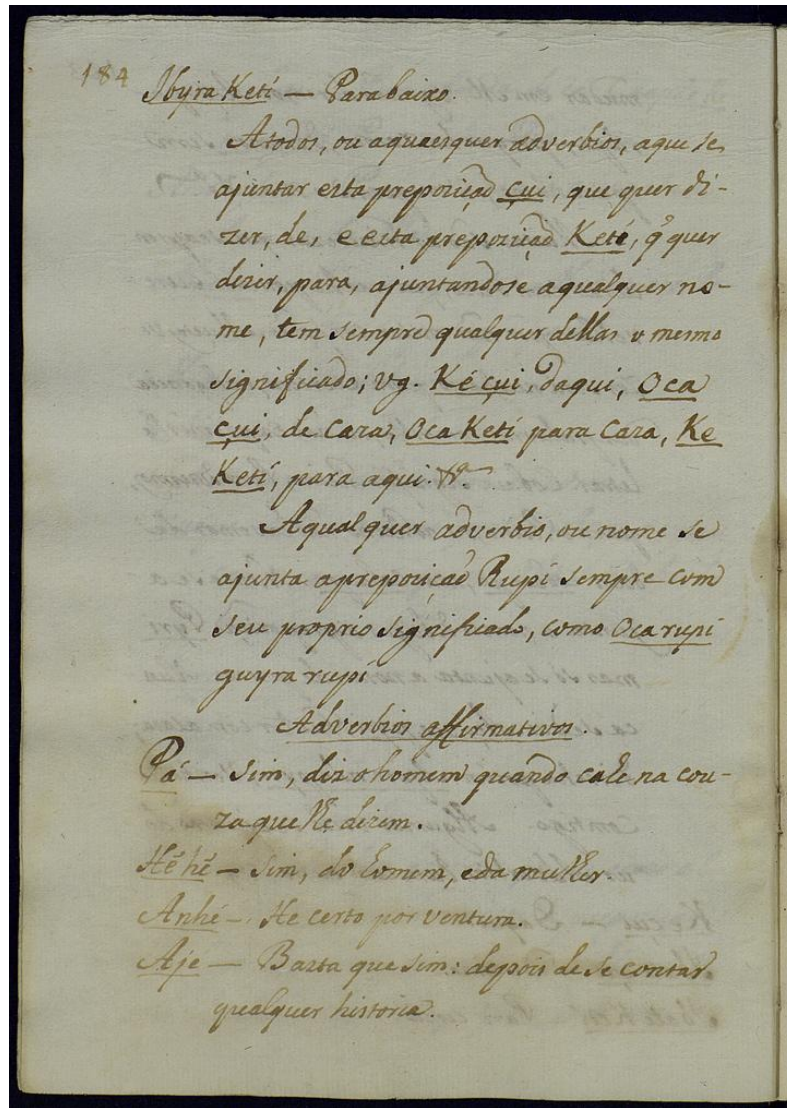 184
Ibyra Ketí — Para baixo.
Atodos, ou aquaesquer adverbios, aque se
ajuntar esta prepozição çui, que quer di-
zer, de, e esta prepozição Keté, q̃ quer
dizer, para, ajuntandose aqualquer no-
me, tem sempre qualquer dellas o mesmo
significado; vg. Ké çui, daqui, Oca
çui, de Caza, Oca Ketí para Caza, Ke
Ketí, para aqui. &ª
Aqualquer adverbio, ou nome se
ajunta aprepozição Rupí sempre com
seu proprio significado, como Oca rupí
guyra rupí
Adverbios affirmativos.
Pá — sim, diz o homem quando cahe na cou-
za que lhe dizem.
Hẽ hẽ — sim, do homem, e da mulher.
Anhé — He certo por ventura.
Aje — Basta que sim: depois de se contar
qualquer historia.